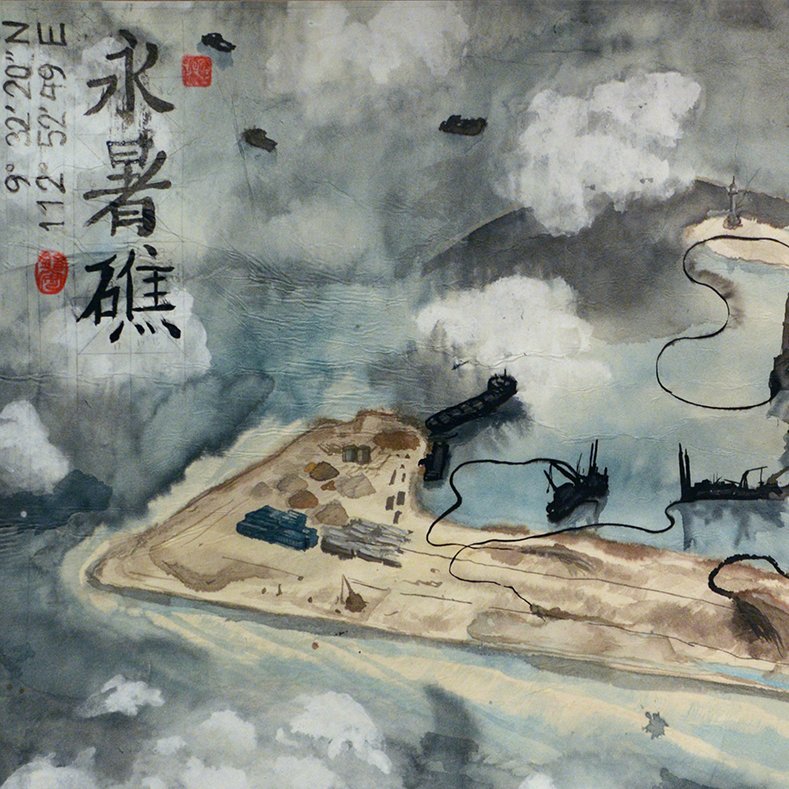 永暑礁
9° 32′ 20″ N
112° 52′ 49 E